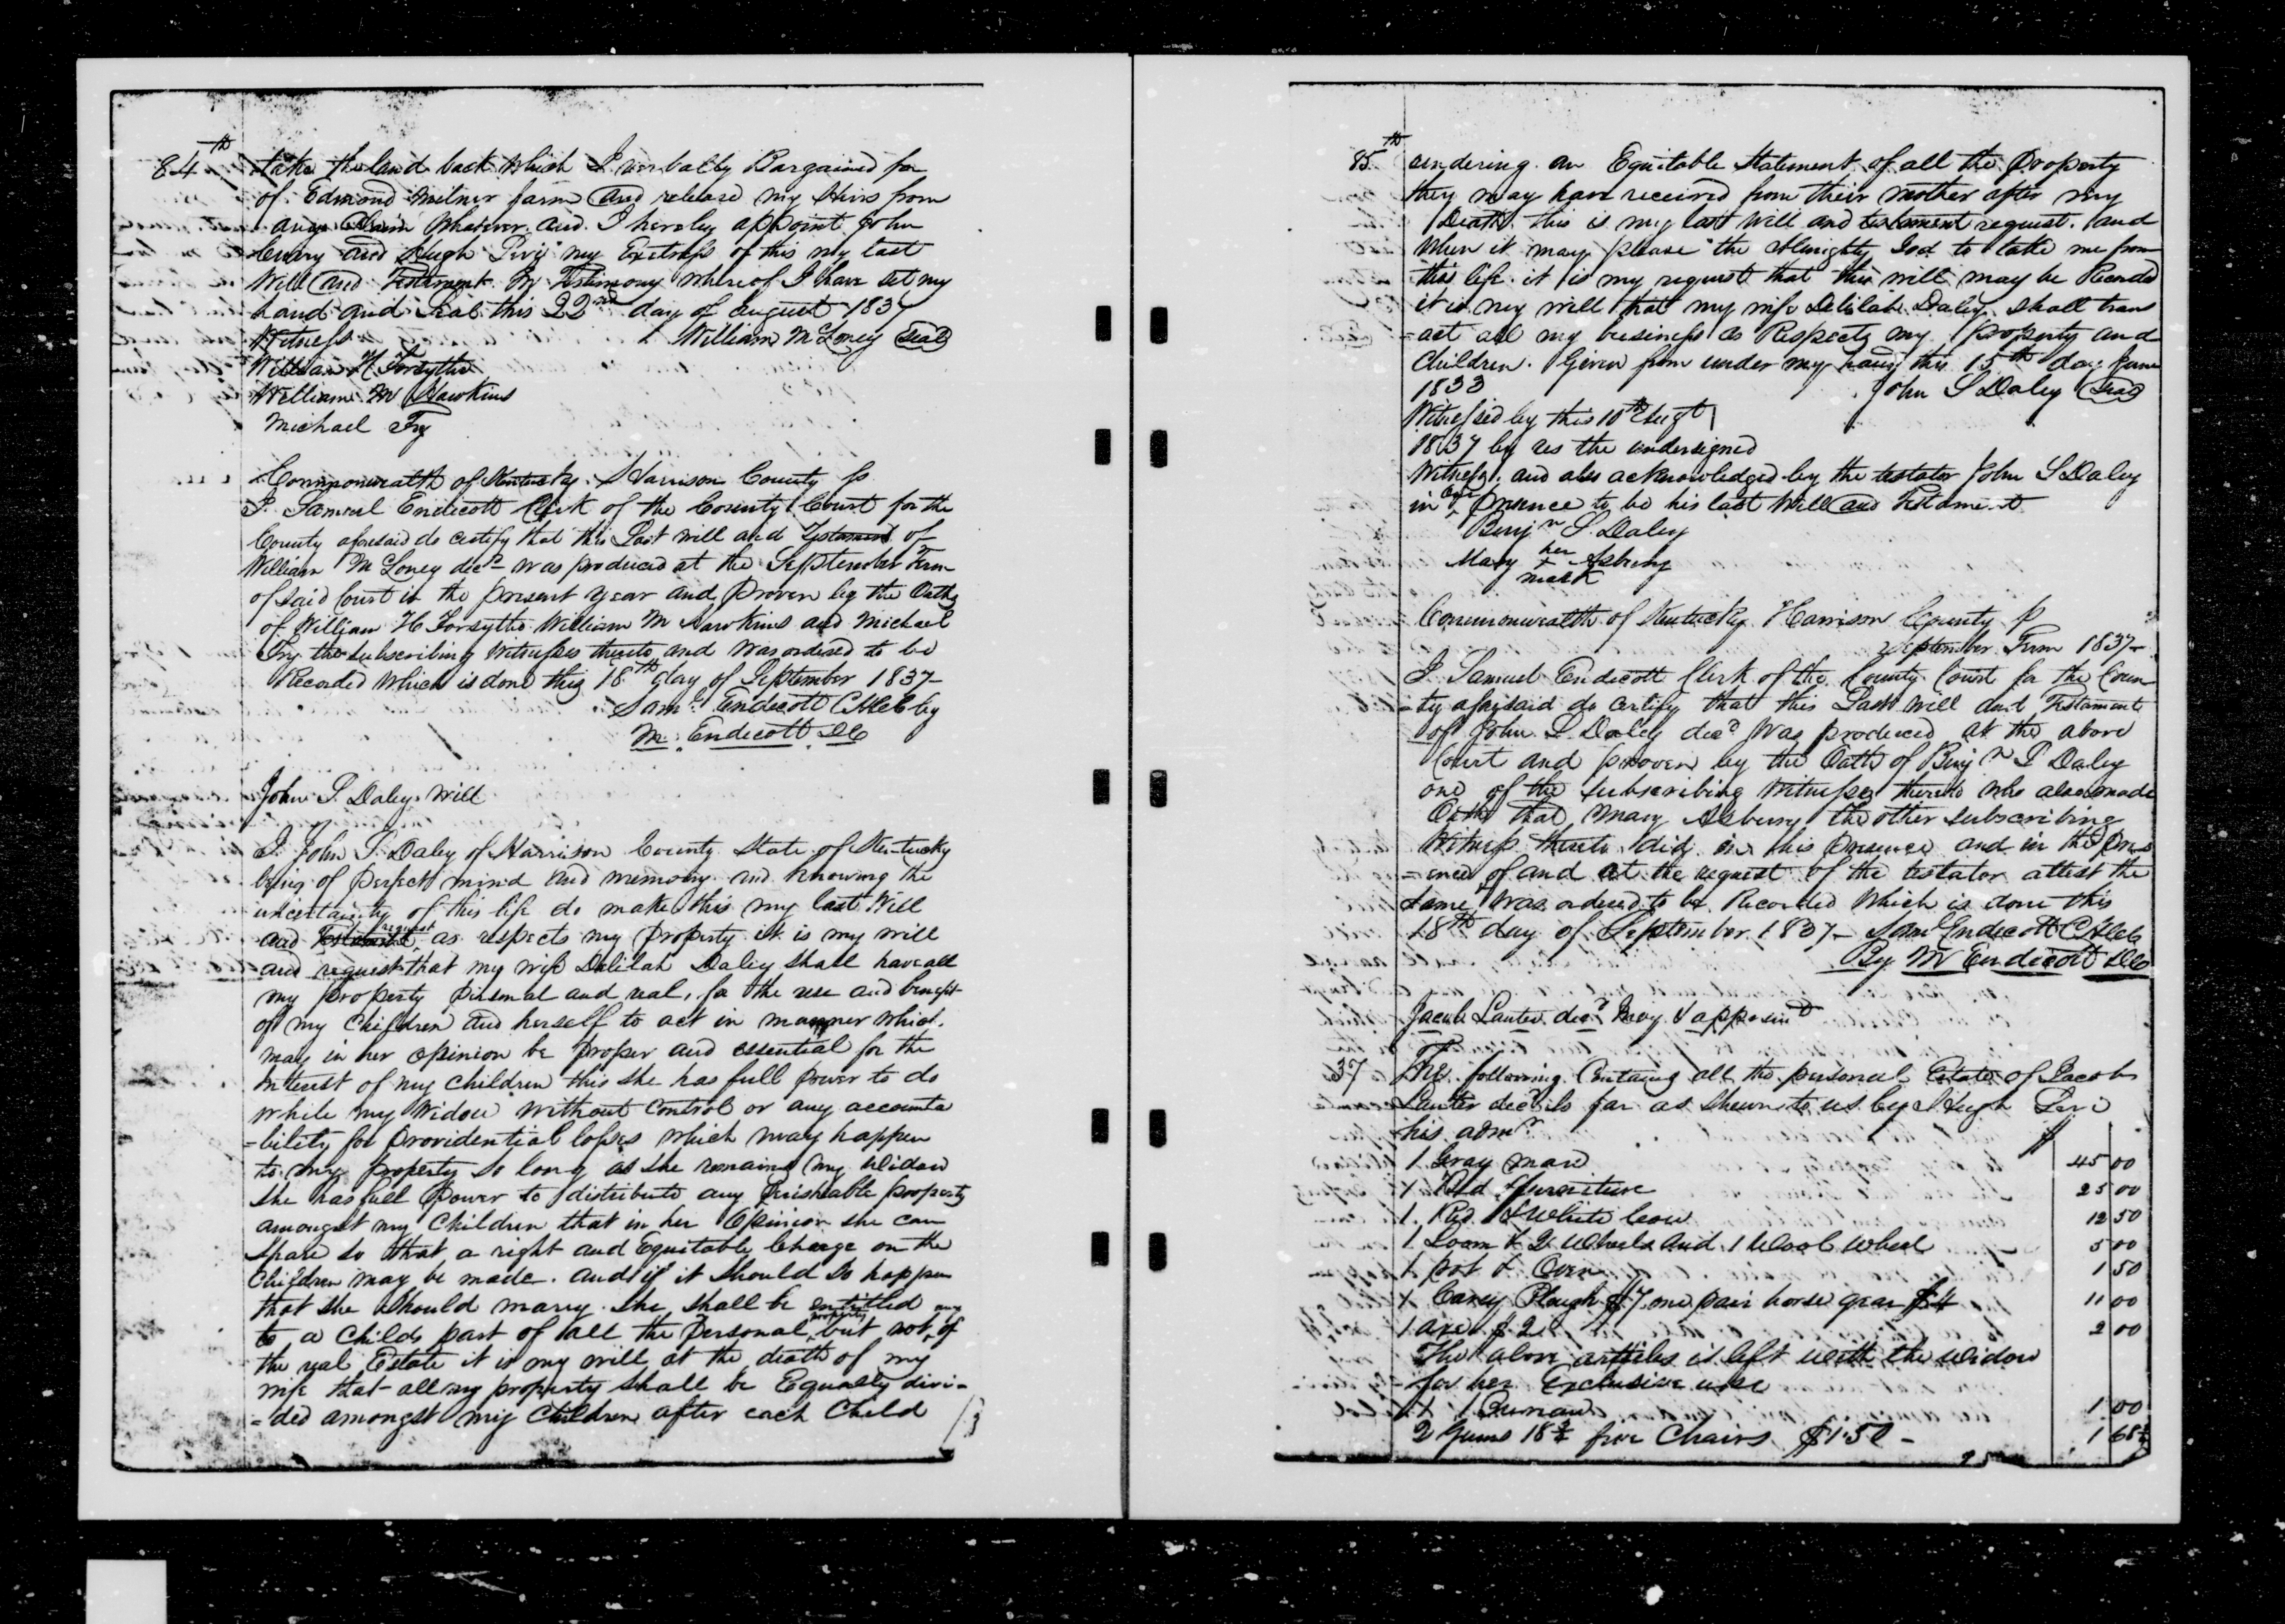 84th
take the land back which I verbally Bargained for
of Edmond Milner farm and release my Heirs from
any Claim whatever and I hereby appoint John
Curry and Hugh my Exetrs of this my last
Will and Testament In Testimony whereof I have set my
hand and Seal this 22nd day of August 1837
Witness William McLoney Seal
William H Forsythe
William M Hawkins
Michael Fry
Commonwealth of Kentucky Harrison County ss
I Samuel Endicott Clerk of the County Court for the
County aforesaid do certify that this Last will and Testament of
William McLoney decd was produced at the September Term
of said Court in the present year and proven by the Oaths
of William H Forsythe William M Hawkins and Michael
Fry the subscribing Witnesses thereto and was ordered to be
Recorded which is done this 18th day of September 1837
Saml Endicott CHCC by
M. Endicott DC
John S. Daley Will
I John S. Daley of Harrison County State of Kentucky
being of perfect mind and memory and knowing the
uncertainty of this life do make this my last Will
and request as respects my property it is my will
and request that my wife Delilah Daley shall have all
my property personal and real, for the use and benefit
of my Children and herself to act in manner which
may in her opinion be proper and essential for the
interest of my children this she has full power to do
while my widow without control or any accounta
-bility for providential losses which may happen
to my property so long as she remains my Widow
she has full power to distribute any perishable property
amongst my Children that in her opinion she can
spare so that a right and Equitable Charge on the
Children may be made. and if it should so happen
that she should marry she shall be entitled
to a childs part of all the personal property but not any of
the real Estate it is my will at the death of my
wife that all my property shall be Equally divi-
=ded amongst my Children after each Child
85th
rendering an Equitable Statement of all the Property
they may have received from their mother after my
Death. this is my last Will and testament request. and
when it may please the Almighty God to take me from
this life. it is my request that this will may be Recorded
it is my will that my wife Delilah Daley shall trans
=act all my business as Respects my property and
Children. Given from under my hand this 15th day June
1833 John S Daley Seal
Witnessed by this 10th Augt
1837 by us the undersigned
Witness, and also acknowledged by the testator John S Daley
in our Presence to be his last Will and Testament
Benjn S. Daley
Mary her + Asbury
mark
Commonwealth of Kentucky Harrison County
September Term 1837
I Samuel Endicott Clerk of the County Court for the Coun
-ty aforesaid do certify that this Last will and Testament
of John S. Daley decd was produced at the above
Court and proven by the Oath of Benjn S Daley
one of the subscribing Witnesses thereto who also made
Oath that Mary Asbury the other subscribing
Witness thereto did in his presence and in the pres
=ence of and at the request of the testator attest the
same was ordered to be Recorded Which is done this
18th day of September 1837 Saml Endicott CHCC
By M Endicott DC
Jacob Lauter decd & appraismt
37 The following Contains all the personal Estate of Jacob
Lauter decd so far as shewn to us by Hugh
his admr $
1 Gray mare 45 00
1 Bed & furniture 25 00
1 Red & White Cow 12 50
1 Loom & 2 Wheels and 1 Wool Wheel 5 00
1 pot & Oven 1 50
1 Carey Plough $7 one pair horse gear $4 11 00
1 axe $2 2 00
The above articles is left with the widow
for her Exclusive use
1 Bureau 1 00
2 Gums 18¾ five Chairs $1.50 - 1 68¾